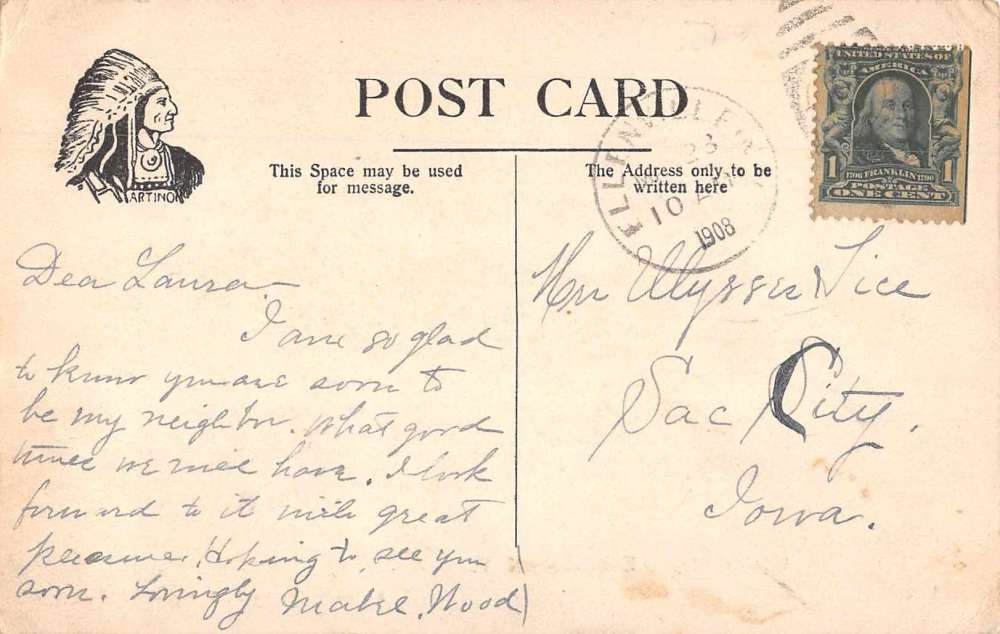 POST CARD
ARTINO
This Space may be used
for message.
The Address only to be
written here
ELLENVILLE, N.Y.
23
10 A
1908
UNITED STATES OF
AMERICA
1 1
1706 FRANKLIN 1790
POSTAGE
ONE CENT
Dear Laura
I am so glad
to know you are soon to
be my neighbor. What good
times we will have. I look
forward to it with great
pleasure. Hoping to see you
soon. Lovingly Mabel Wood
Mrs Ulysses Vice
Sac City.
Iowa.